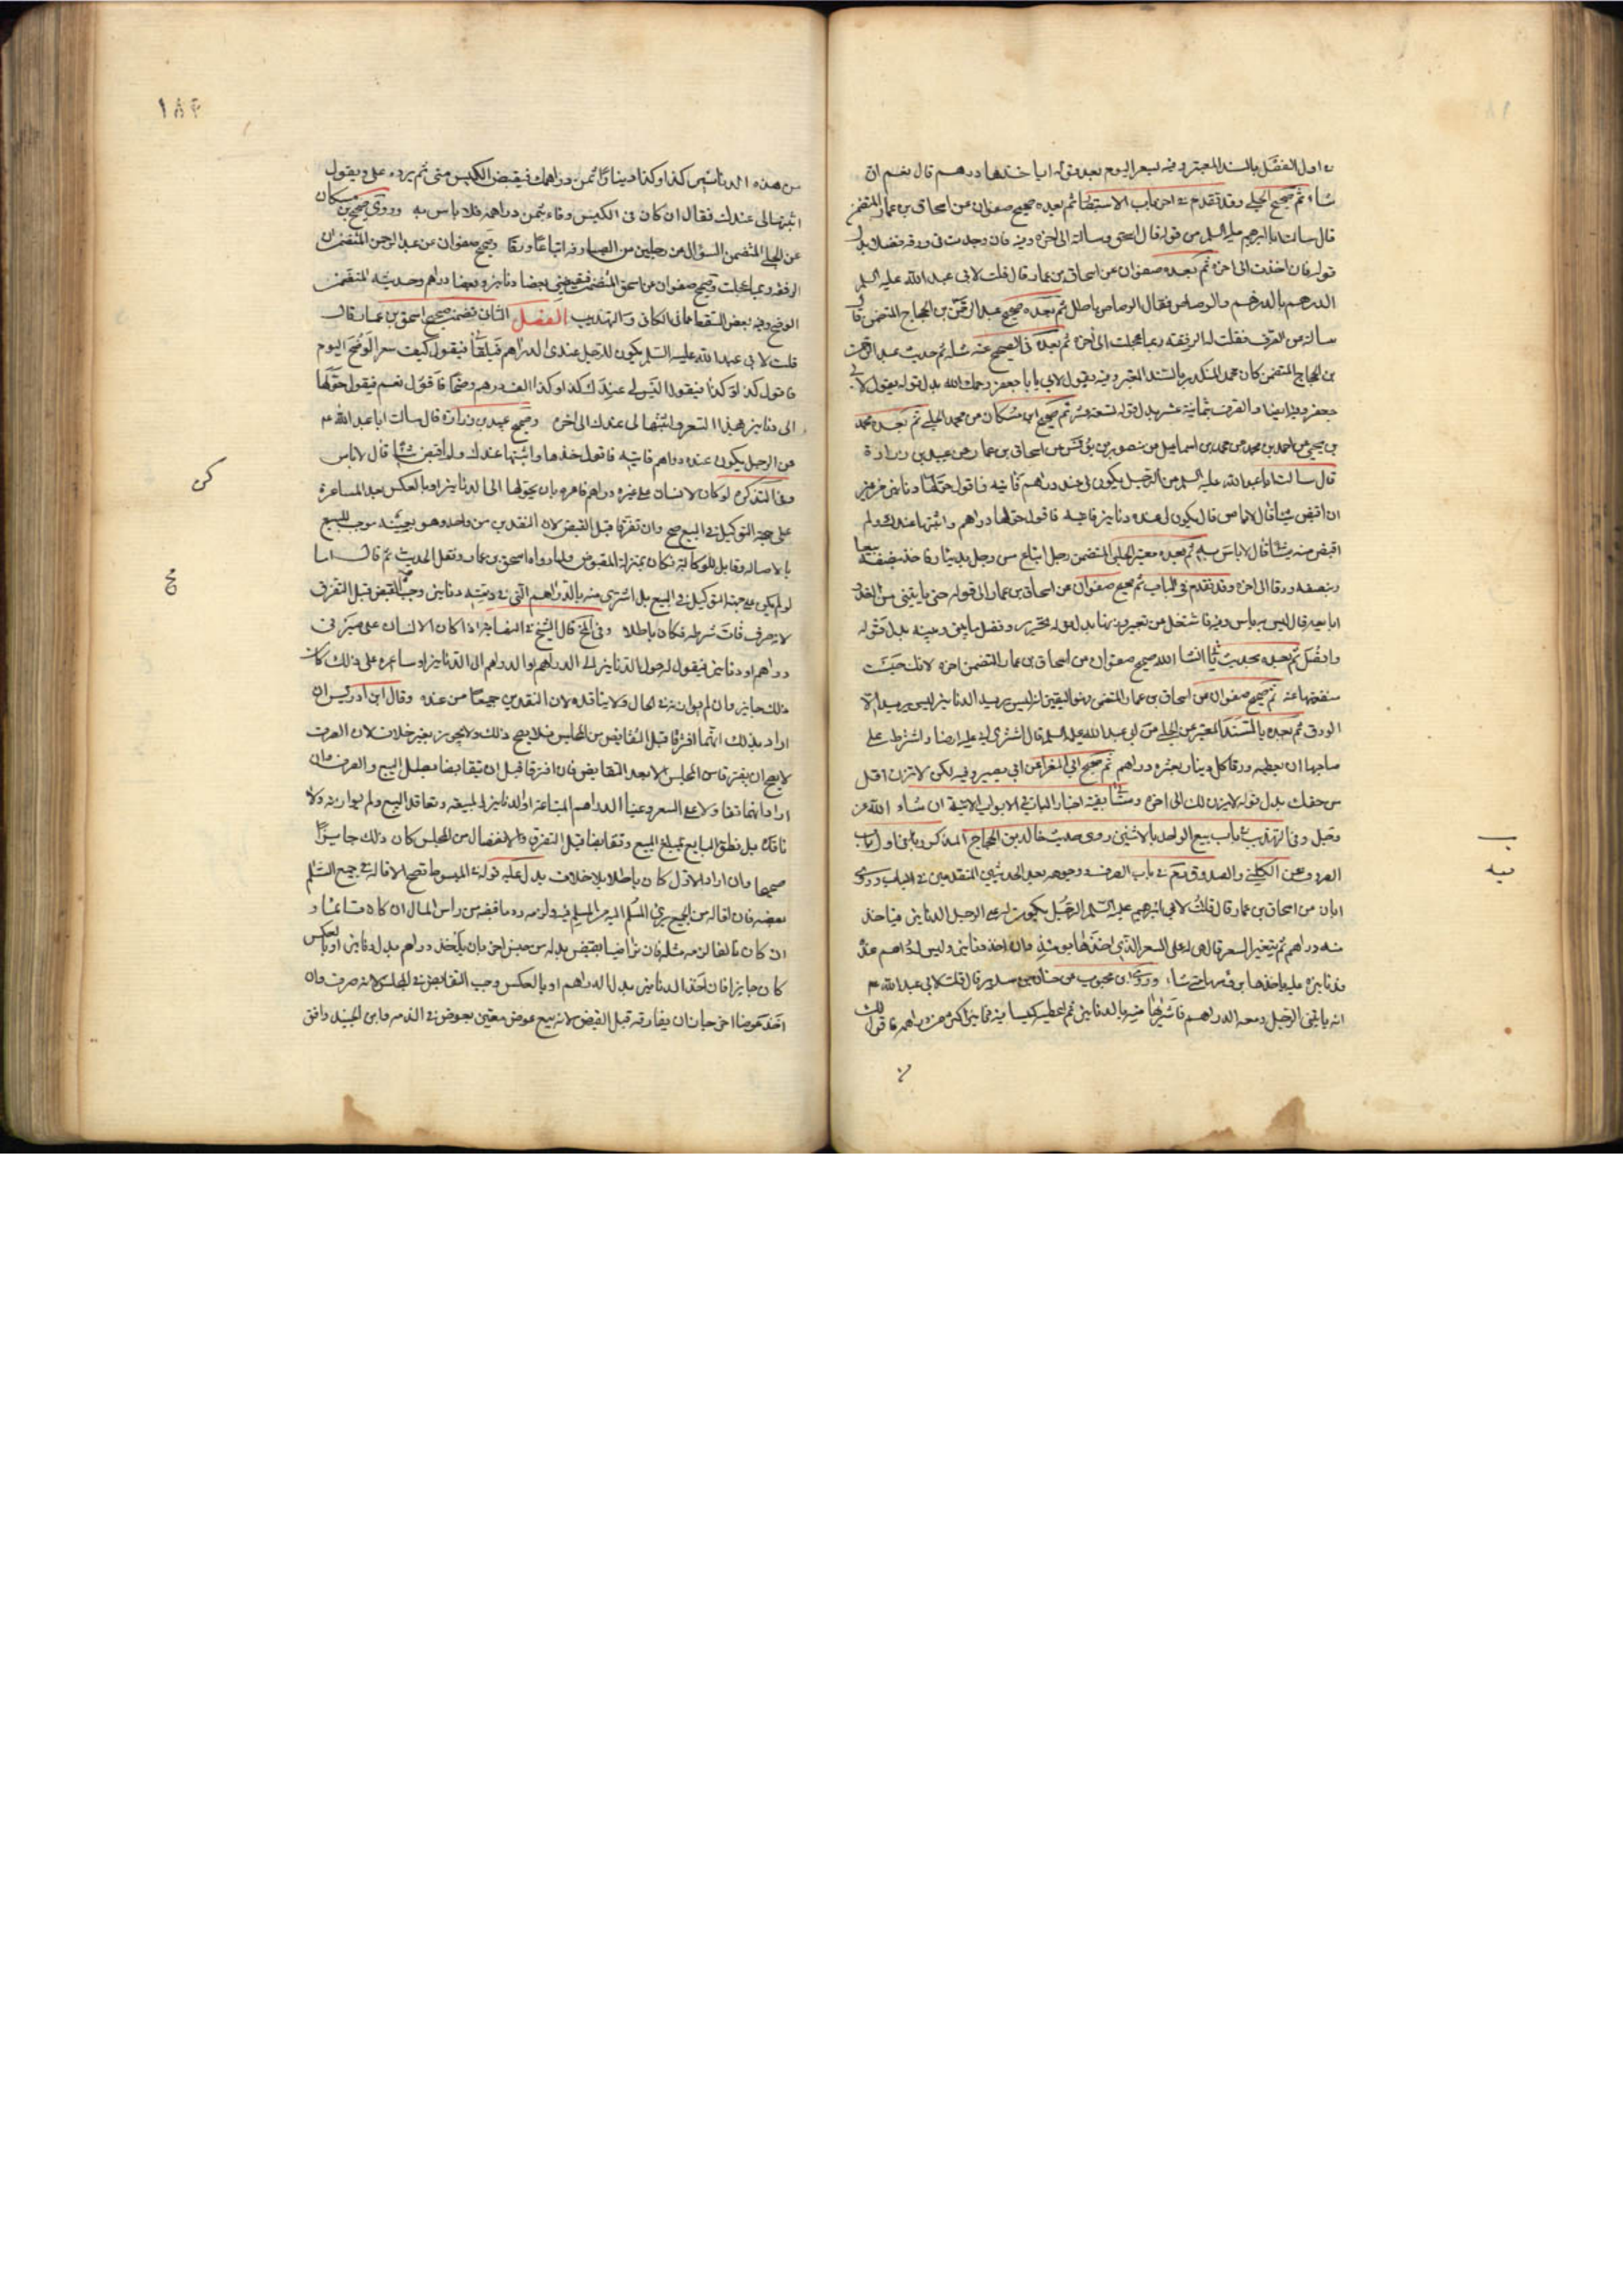 اول الفضل بالسند المعتبر وفيه بسعر اليوم بعد قوله ايأخذها دراهم قال نعم ان
شاء ثم صحيح الحلبي وقد تقدم في اخر باب ثم بعده صحيح صفوان عن اسحاق بن عمار المتضمن
قال سالت ابا ابرهيم عليه السلم من قوله قال اسحق وسالته الى اخره وفيه فان وجدت في ورقه فضلا بدل
قوله فان اخذت الى اخره ثم بعده صفوان عن اسحاق بن عمار قال قلت لابي عبد الله عليه السلم
الدرهم بالدرهم والرصاص فقال الرصاص باطل ثم بعده صحيح عبد الرحمن بن الحجاج المتضمن قال
سالته عن الصرف فقلت له الرفقه ربما عجلت الى اخره ثم بعده في الصحيح عنه مثله ثم حديث عبد الرحمن
بن الحجاج المتضمن كان محمد بن المنكدر بالسند المعتبر وفيه يقول لابي يا با جعفر رحمك الله بدل قوله يقول لابي
جعفر وفيه دينارا والصرف بثمانية عشر بدل قوله تسعة عشر ثم صحيح ابن مسكان عن محمد الحلبي ثم بعده محمد
بن يحيى عن احمد بن محمد عن محمد بن اسماعيل عن منصور بن يونس عن اسحاق بن عمار عن عبيد بن زرارة
قال سالت ابا عبد الله عليه السلم عن الرجل يكون لي عنده دراهم فاتيه فاقول حولها دنانير من غير
ان اقبض شيئا قال لا باس قال يكون لي عنده دنانير فاتيه فاقول حولها دراهم واثبتها عندك ولم
اقبض منه شيئا قال لا باس ثم بعده معتبر الحلبي المتضمن رجل ابتاع من رجل بدينار فاخذ بنصفه بيعا
وبنصفه ورقا الى اخره وقد تقدم في الباب ثم صحيح صفوان عن اسحاق بن عمار الى قوله حتى ياتيني من الغد
ثم بعده بحديث انشا الله صحيح صفوان عن اسحاق بن عمار المتضمن اخره لانك حيث
ثم صحيح صفوان عن اسحاق بن عمار المتضمن ليس يريد الدنانير ليس يريد الا
الورق ثم بعده بالسند المعتبر عن الحلبي عن ابي عبد الله عليه السلم قال اشترى ارضا واشترط على
صاحبها ان يعطيه ورقا كل دينار بعشرة دراهم ثم صحيح ابي المغرا عن ابي بصير وفيه لكن لا تزن اقل
من حقك بدل قوله الى اخره وستأتي بقية اخبار الباب في الابواب الاتية ان شاء الله عز
وجل وفي التهذيب في باب بيع الواحد بالاثنين روى حديث خالد بن الحجاج المذكور
الكليني والصدوق نعم في باب الصرف بعد الحديثين المتقدمين في الباب وروى
ابان عن اسحاق بن عمار قال قلت لابي ابرهيم عليه السلم الرجل يكون له على الرجل الدنانير فياخذ
منه دراهم ثم يتغير السعر قال هي له على السعر الذي اخذها يومئذ وان اخذ دنانير وليس له دراهم عنده
فدنانيره عليه ياخذها برؤسها متى شاء وروى ابن محبوب عن حنان بن سدير قال قلت لابي عبد الله ع
انه ياتيني الرجل ومعه الدراهم فاشتريها منه بالدنانير ثم اعطيه كيسا فيه دنانير اكثر من دراهمه فاقول لك
١٨٢
من هذه الدنانير كذا وكذا دينارا ثمن دراهمك فيقبض الكيس مني ثم يرده علي ويقول
اثبتها لي عندك فقال ان كان في الكيس وفاء بثمن دراهمه فلا باس به وروى صحيح بن مسكان
عن الحلبي المتضمن السؤال عن رجلين من الصيارفه ابتاعا ورقا وصحيح صفوان عن عبد الرحمن المتضمن ان
الرفقه ربما عجلت وصحيح صفوان عن اسحق المتضمن بعضا دنانير وبعضا دراهم وحديثه المتضمن
الوضح وفيه بعض في الكافي وفي التهذيب الفصل الثاني تضمن صحيح اسحق بن عمار قال
قلت لابي عبد الله عليه السلم يكون للرجل عندي الدراهم فيلقاني فيقول كيف سعر الوضح اليوم
فاقول كذا وكذا فيقول اليس لي عندك كذا وكذا الف درهم وضحا فاقول نعم فيقول حولها
الى دنانير بهذا السعر واثبتها لي عندك الى اخره وصحيح عبيد بن زرارة قال سالت ابا عبد الله ع
عن الرجل يكون لي عنده دراهم فاتيه فاقول خذها واثبتها عندك ولم اقبض شيئا قال لا باس
وفي التذكرة لو كان لانسان على غيره دراهم فامره بان يحولها الى الدنانير او بالعكس بعد المساعرة
على جهة التوكيل في البيع صح وان تفرقا قبل القبض لان النقدين من واحد وهو موجب للبيع
بالاصالة وقابل للوكالة فكان بمنزلة المقبوض ولما رواه اسحق بن عمار ونقل الحديث ثم قال اما
لو لم يكن على جهة التوكيل في البيع بل اشترى منه بالدراهم التي في ذمته دنانير وجب القبض قبل التفرق
لانه صرف فات شرطه فكان باطلا وفي المخ قال الشيخ في النهاية اذا كان لانسان على صيرفي
دراهم او دنانير فيقول له حول الدنانير الى الدراهم او الدراهم الى الدنانير وساعره على ذلك كان
ذلك جايزا وان لم يوازنه في الحال ولا يناقده لان النقدين جميعا من عنده وقال ابن ادريس ان
اراد بذلك انهما افترقا قبل التقابض من المجلس فلا يصح ذلك ولا يجوز بغير خلاف لان الصرف
لا يصح ان يفترقا من المجلس الا بعد التقابض فان افترقا قبل ان يتقابضا بطل البيع والصرف وان
اراد انهما تقاولا على السعر وعينا الدراهم المبتاعة او الدنانير المبيعة وتعاقدا البيع ولم يوازنه ولا
ناقده بل نطق البايع بمبلغ المبيع وتقابضا قبل التفرق والانفصال من المجلس كان ذلك جايزا
صحيحا وان اراد الاول كان باطلا بلا خلاف يدل عليه قوله في المبسوط تصح الاقالة في جميع السلم
بعضه فان اقاله من الجميع برئ المسلم اليه من المسلم فيه ولزمه رد ما قبضه من راس المال ان كان قائما و
ان كان تالفا لزمه مثله فان تراضيا بقبض بدله من جنس اخر بان ياخذ دراهم بدل دنانير او بالعكس
كان جايزا فان اخذ الدنانير بدل الدراهم او بالعكس وجب التقابض في المجلس لانه صرف وان
اخذ عوضا اخر جاز ان يفارقه قبل القبض لانه بيع عوض معين بعوض في الذمه وابن الجنيد وافق